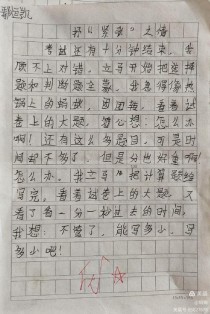 我"紧张"之情
考试还有十分钟结束,我
顾不上对错,立马开始把选择
题和判断题全蒙。我急得像热
锅上的蚂蚁,团团转。看着试
卷上的大题,我心想:怎么办
啊!还有这么多题目,可是时
间却不多了,但是分也好重啊!
怎么办。我立马把计算题给
写完。看着试卷上的大题,又
看了看一分一秒过去的时间,
我想:不管了,能写多少,写
多少吧!
优